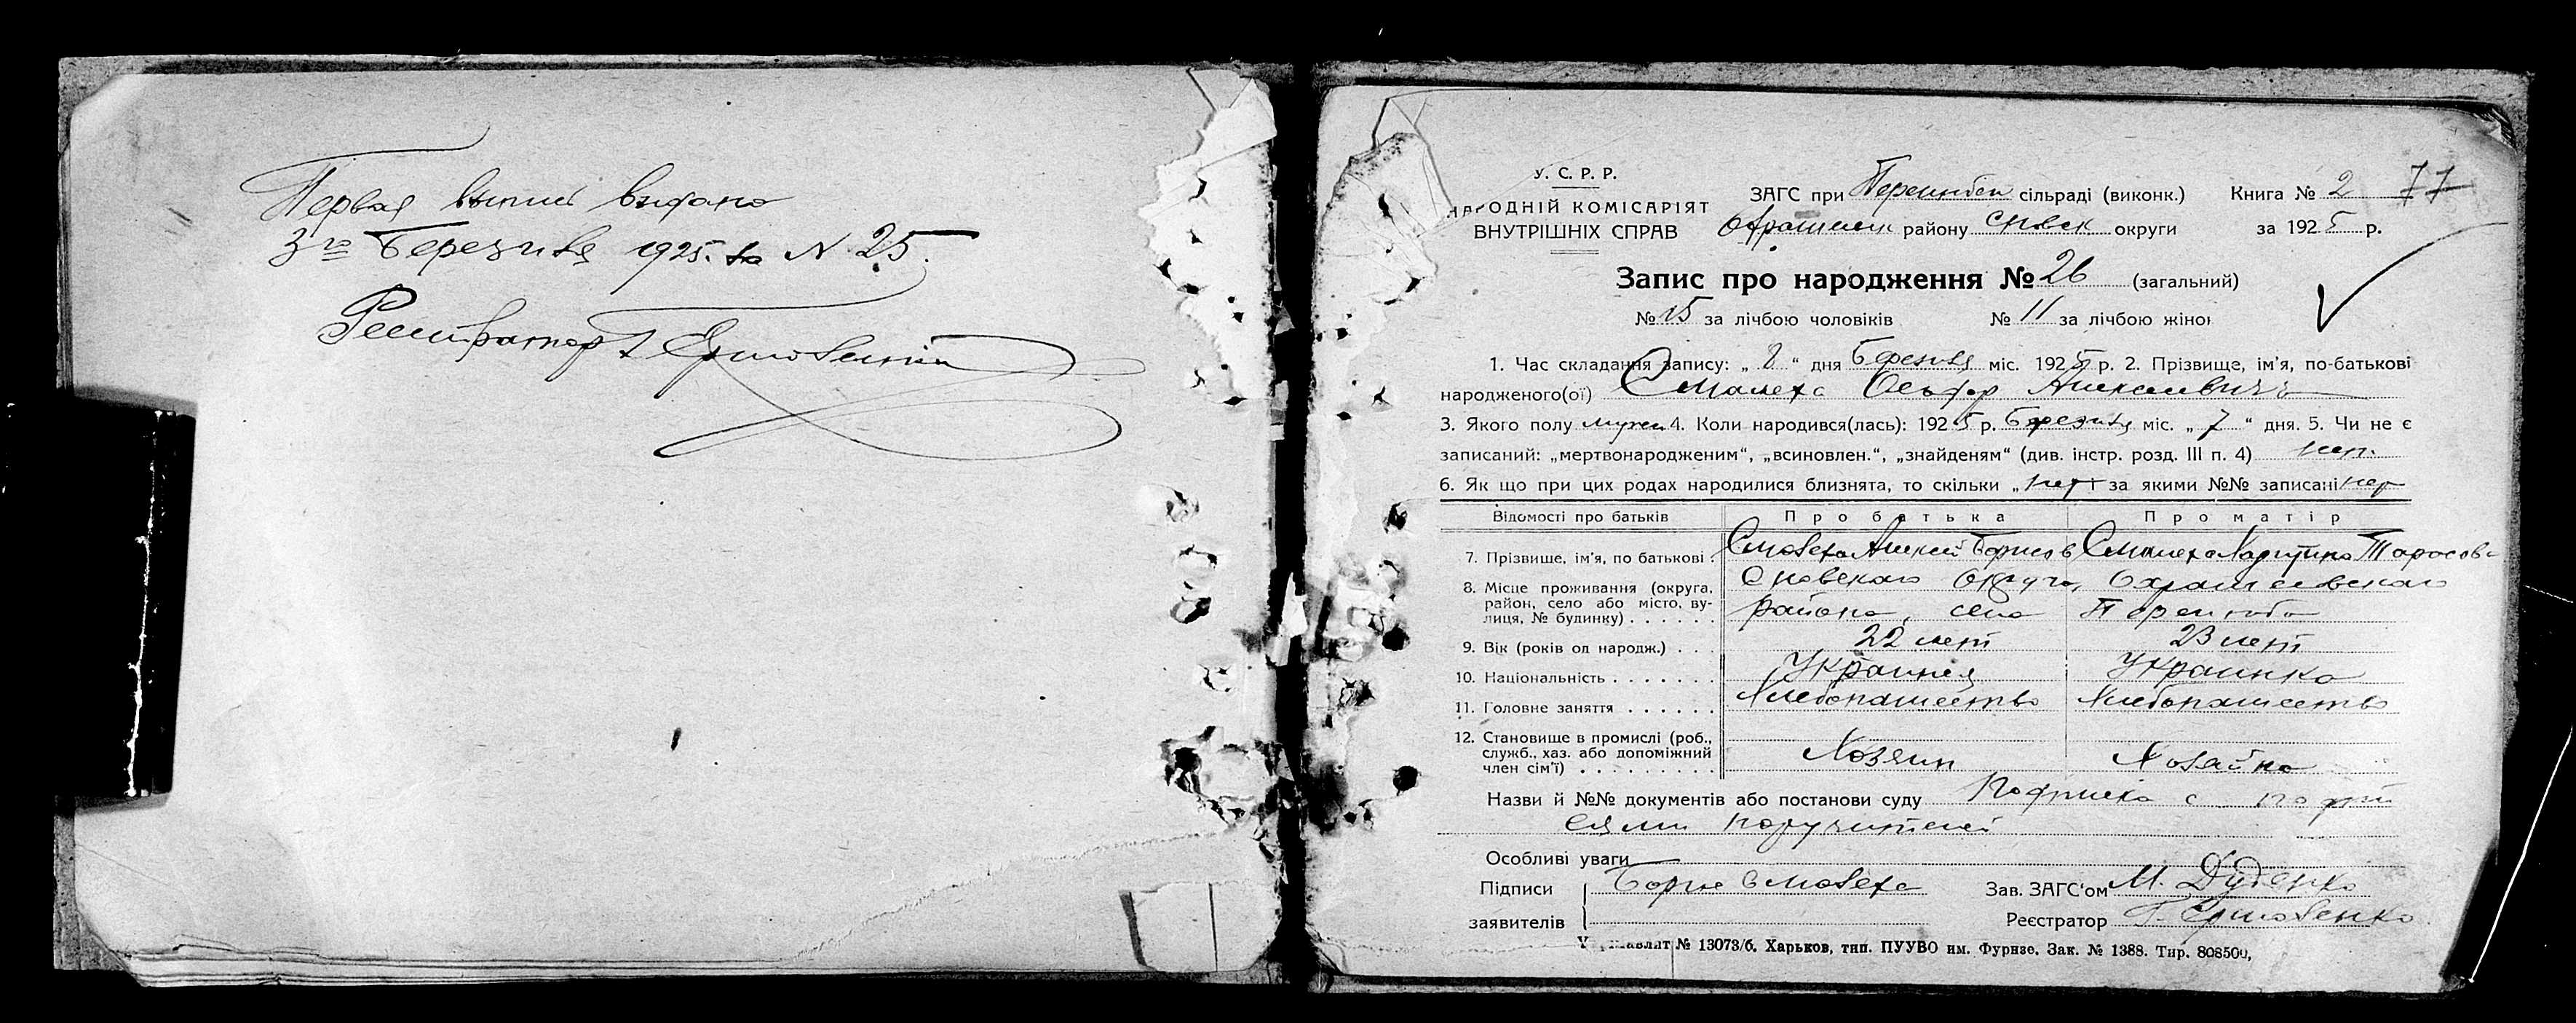 Первая выпись выдана
3го Березня 1925. за N 25.
Реєстратор Ермоленко
У. С. Р. Р.
НАРОДНІЙ КОМІСАРІЯТ
ВНУТРІШНІХ СПРАВ
ЗАГС при сільраді (виконк.) Книга № 2 77
району Сновск округи за 1925 р.
Запис про народження № 26 (загальний)
№ 15 за лічбою чоловіків № 11 за лічбою жінок
1. Час складання запису: „ 8 “ дня Березня міс. 1925 р. 2. Прізвище, ім'я, по-батькові
народженого(ої) Смалеха Алексеевич
3. Якого полу мужск 4. Коли народився(лась): 1925 р. Березня міс. „ 7 “ дня. 5. Чи не є
записаний: „мертвонародженим“, „всиновлен.“, „знайденям“ (див. інстр. розд. III п. 4) нет.
6. Як що при цих родах народилися близнята, то скільки „ нет за якими №№ записані нет
Відомості про батьків Про батька Про матір
7. Прізвище, ім'я, по батькові . Смалеха Алексей Борисов Смалеха Тарасов
8. Місце проживання (округа, район, село або місто, вулиця, № будинку) . . . . . . Сновского Округа, Охрамеевского
района, село
9. Вік (років од народж.) . . . 22 лет 23 лет
10. Національність . . . . . . . Украинец Украинка
11. Головне заняття . . . . . . Хлебопашество Хлебопашество
12. Становище в промислі (роб., служб., хаз. або допоміжний член сім'ї) . . . . . . . . . Хозяин Хозайка
Назви й №№ документів або постанови суду Подписка с
поручителей
Особливі уваги
Підписи Борис Смалеха Зав. ЗАГС'ом М. Дуденко
заявителів Реєстратор Г. Ермоленко
№ 13073/б. Харьков, тип. ПУУВО им. Фрунзе. Зак. № 1388. Тир. 808500,